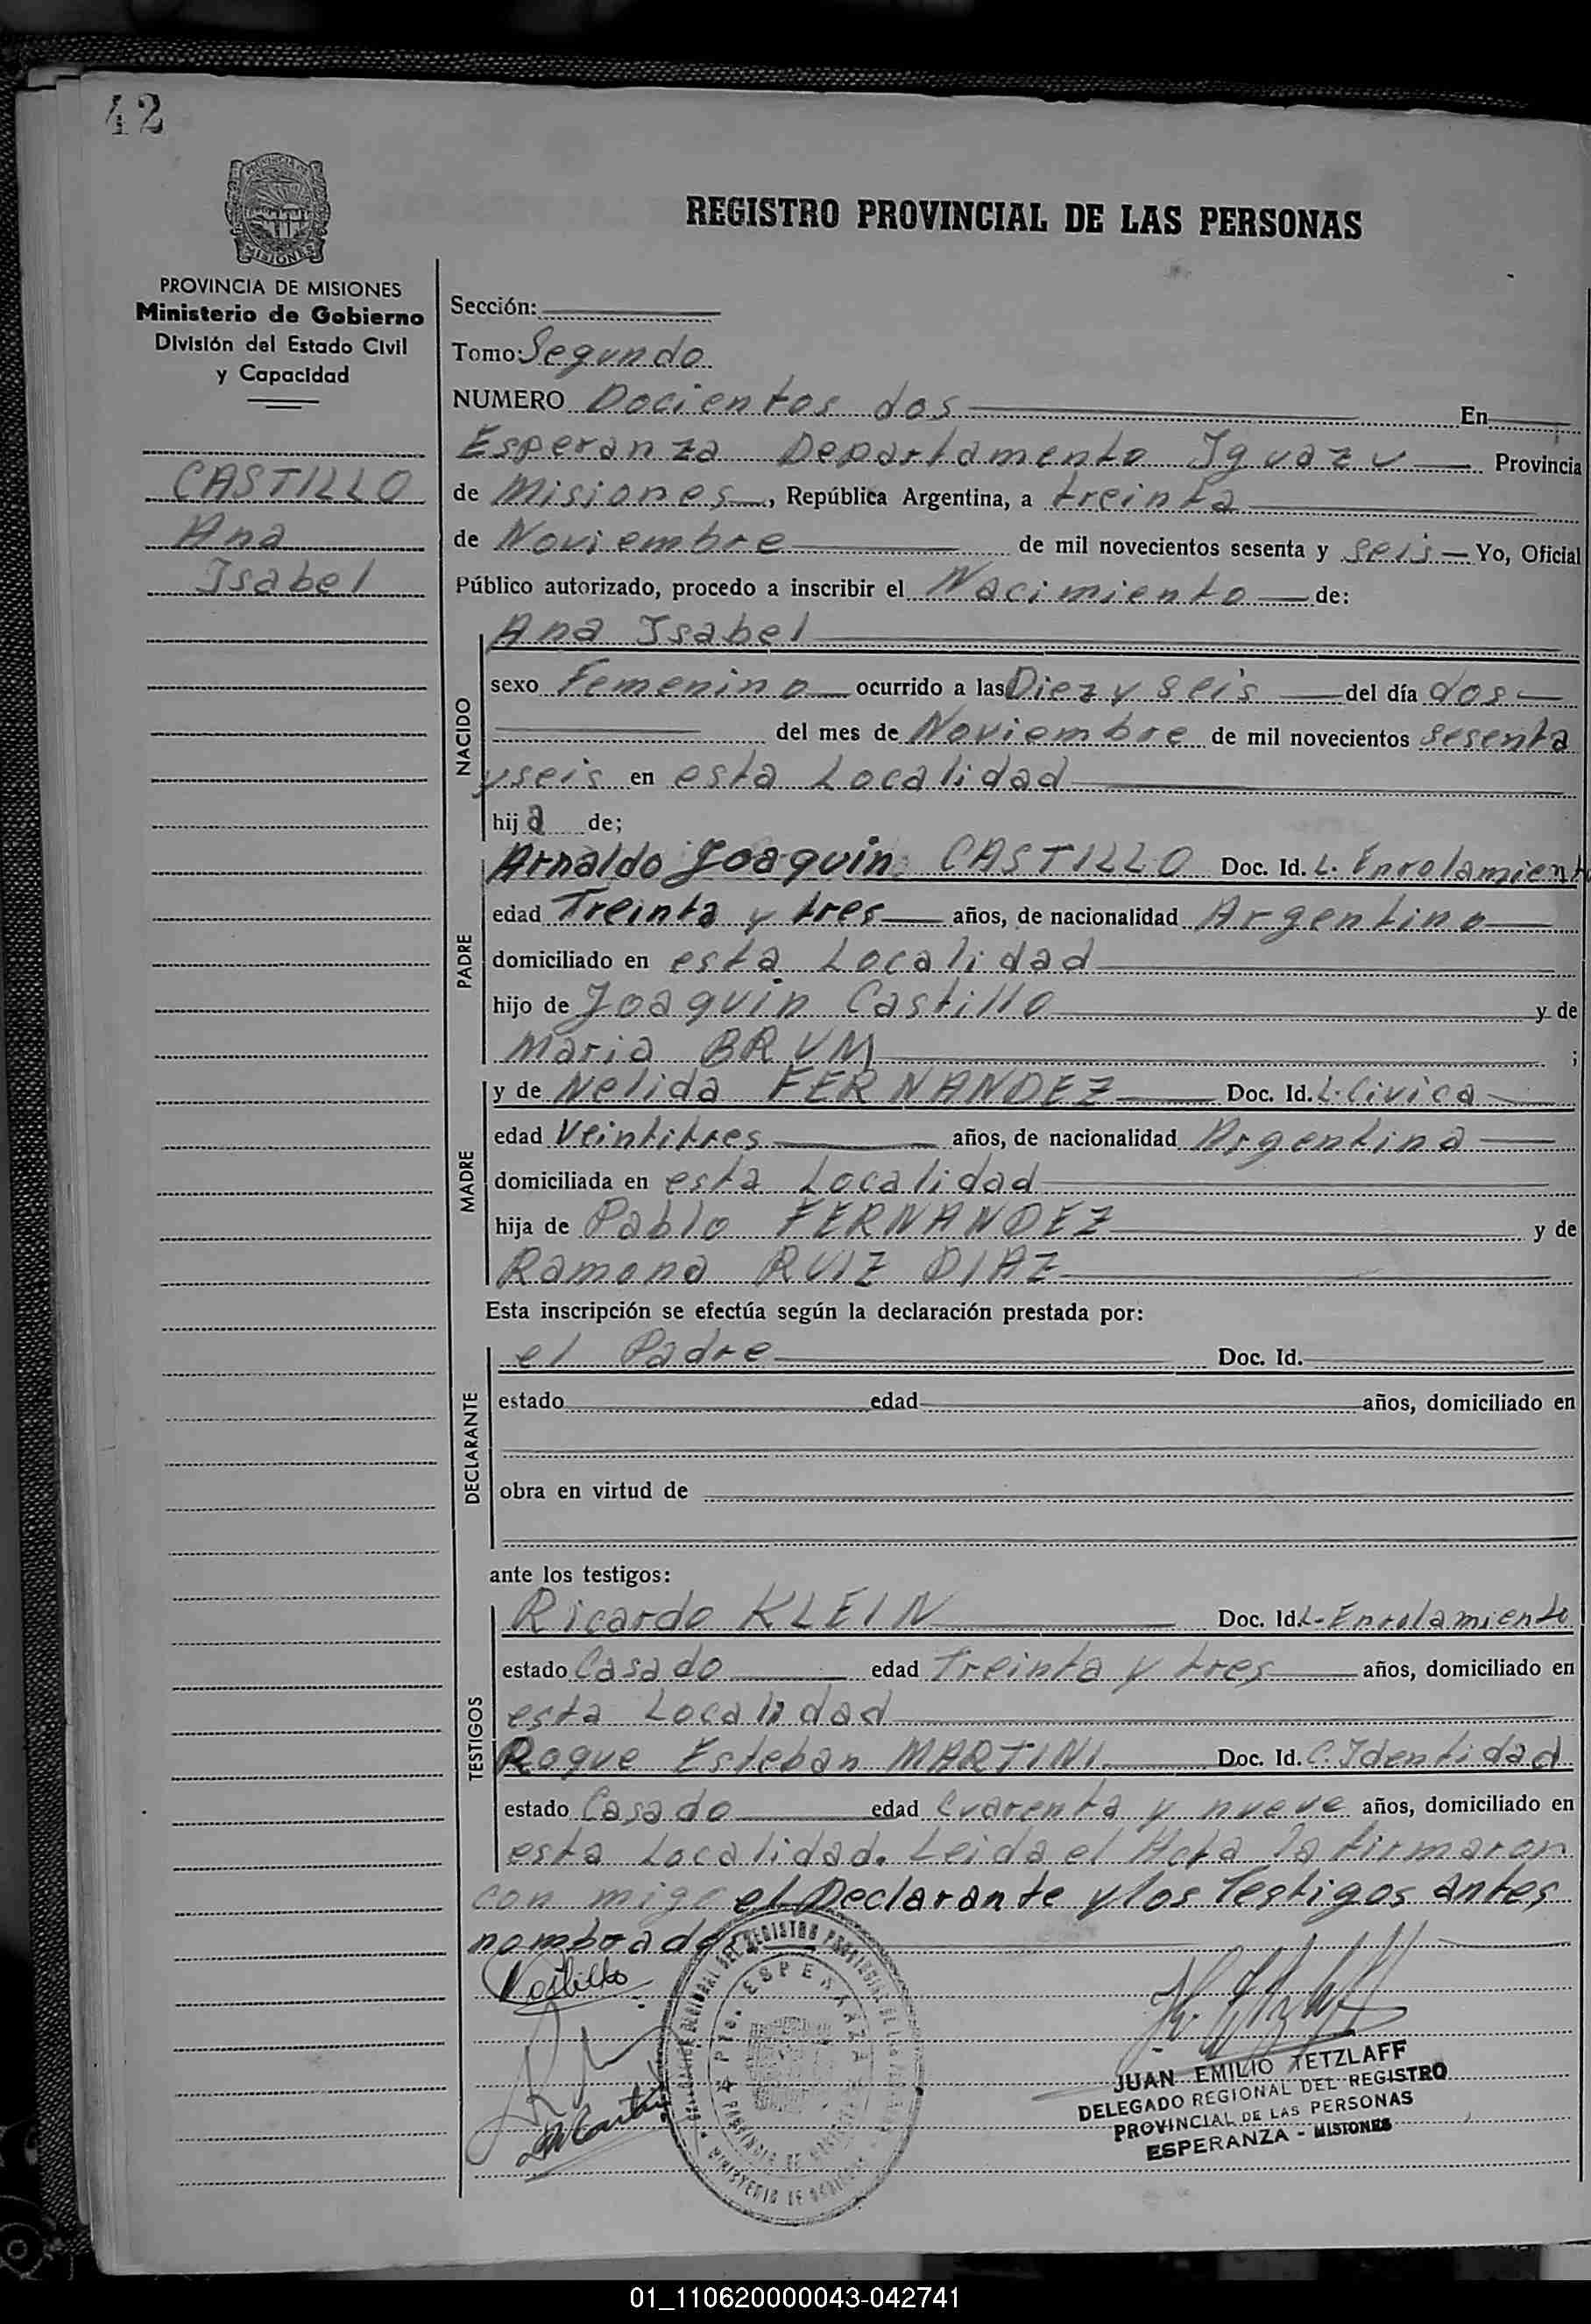 42
REGISTRO PROVINCIAL DE LAS PERSONAS
PROVINCIA DE MISIONES
Ministerio de Gobierno
División del Estado Civil
y Capacidad
CASTILLO
Ana
Isabel
Sección:
Tomo: Segundo
NUMERO Docientos dos En
Esperanza Departamento Iguazu Provincia
de Misiones, República Argentina, a treinta
de Noviembre de mil novecientos sesenta y seis Yo, Oficial
Público autorizado, procedo a inscribir el Nacimiento de:
NACIDO
Ana Isabel
sexo Femenino ocurrido a las Diez y seis del día dos
del mes de Noviembre de mil novecientos sesenta
y seis en esta Localidad
hija de;
PADRE
Arnaldo Joaquin CASTILLO Doc. Id. L. Enrolamiento
edad Treinta y tres años, de nacionalidad Argentino
domiciliado en esta Localidad
hijo de Joaquin Castillo y de
Maria BRUM ;
MADRE
y de Nelida FERNANDEZ Doc. Id. L. Civica
edad Veintitres años, de nacionalidad Argentina
domiciliada en esta Localidad
hija de Pablo FERNANDEZ y de
Ramona RUIZ DIAZ
Esta inscripción se efectúa según la declaración prestada por:
DECLARANTE
el Padre Doc. Id.
estado edad años, domiciliado en
obra en virtud de
ante los testigos:
TESTIGOS
Ricardo KLEIN Doc. Id. L. Enrolamiento
estado Casado edad Treinta y tres años, domiciliado en
esta Localidad
Roque Esteban MARTINI Doc. Id. C. Identidad
estado Casado edad Cuarenta y nueve años, domiciliado en
esta Localidad. Leida el Acta la firmaron
con migo el Declarante y los Testigos antes
nombrados
ESPERANZA
JUAN EMILIO TETZLAFF
DELEGADO REGIONAL DEL REGISTRO
PROVINCIAL DE LAS PERSONAS
ESPERANZA - MISIONES
01_110620000043-042741